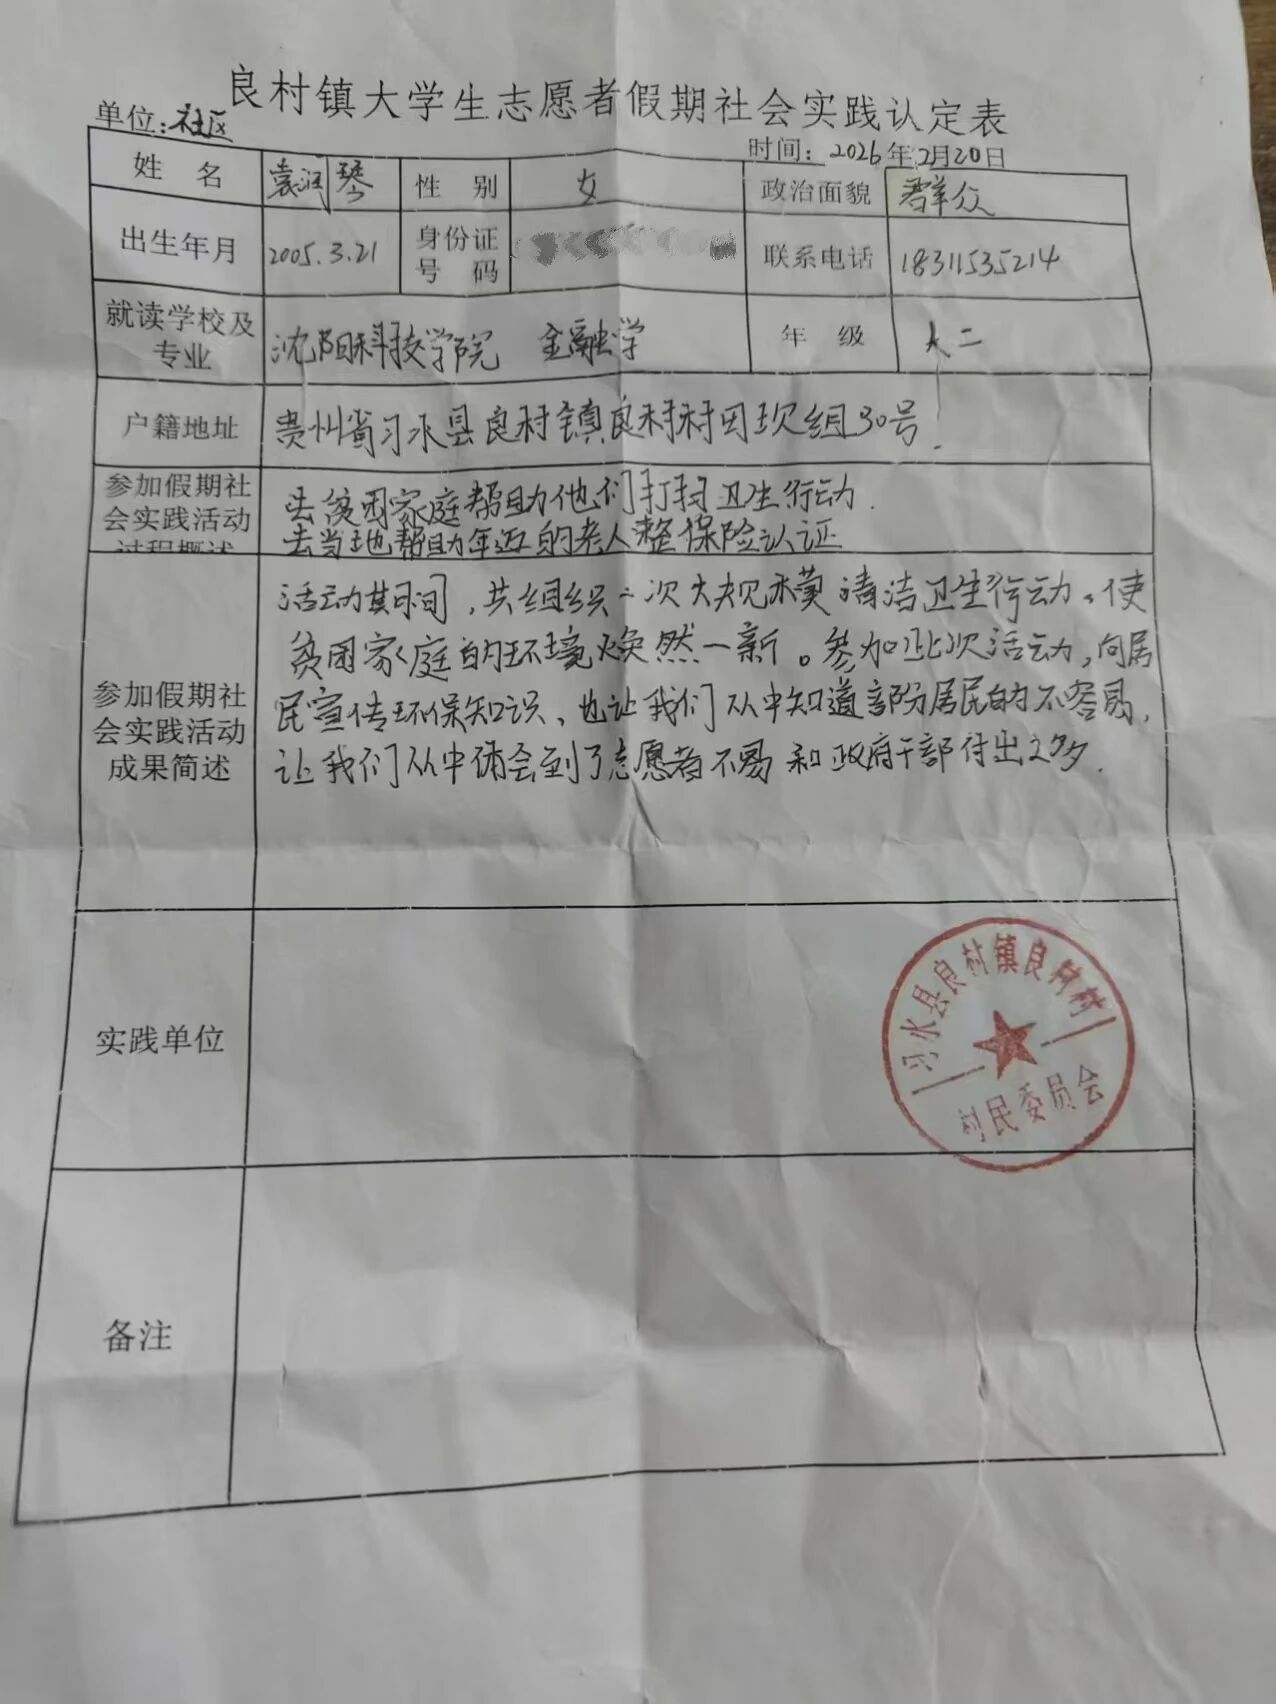 良村镇大学生志愿者假期社会实践认定表
单位:社区
时间:2026年2月20日
姓 名 袁润琴 性 别 女 政治面貌 群众
出生年月 2005.3.21 身份证号 码 联系电话 18311535214
就读学校及
专业 沈阳科技学院 金融学 年 级 大二
户籍地址 贵州省习水县良村镇良村村田坎组30号
参加假期社
会实践活动
过程概述
去贫困家庭帮助他们打扫卫生行动.
去当地帮助年迈的老人整保险认证
参加假期社
会实践活动
成果简述
活动期间,共组织二次大规模清洁卫生行动。使
贫困家庭的环境焕然一新。参加此次活动,向居
民宣传环保知识、也让我们从中知道部份居民的不容易,
让我们从中体会到了志愿者不易和政府干部付出之多.
实践单位
习水县良村镇良村村
村民委员会
备注